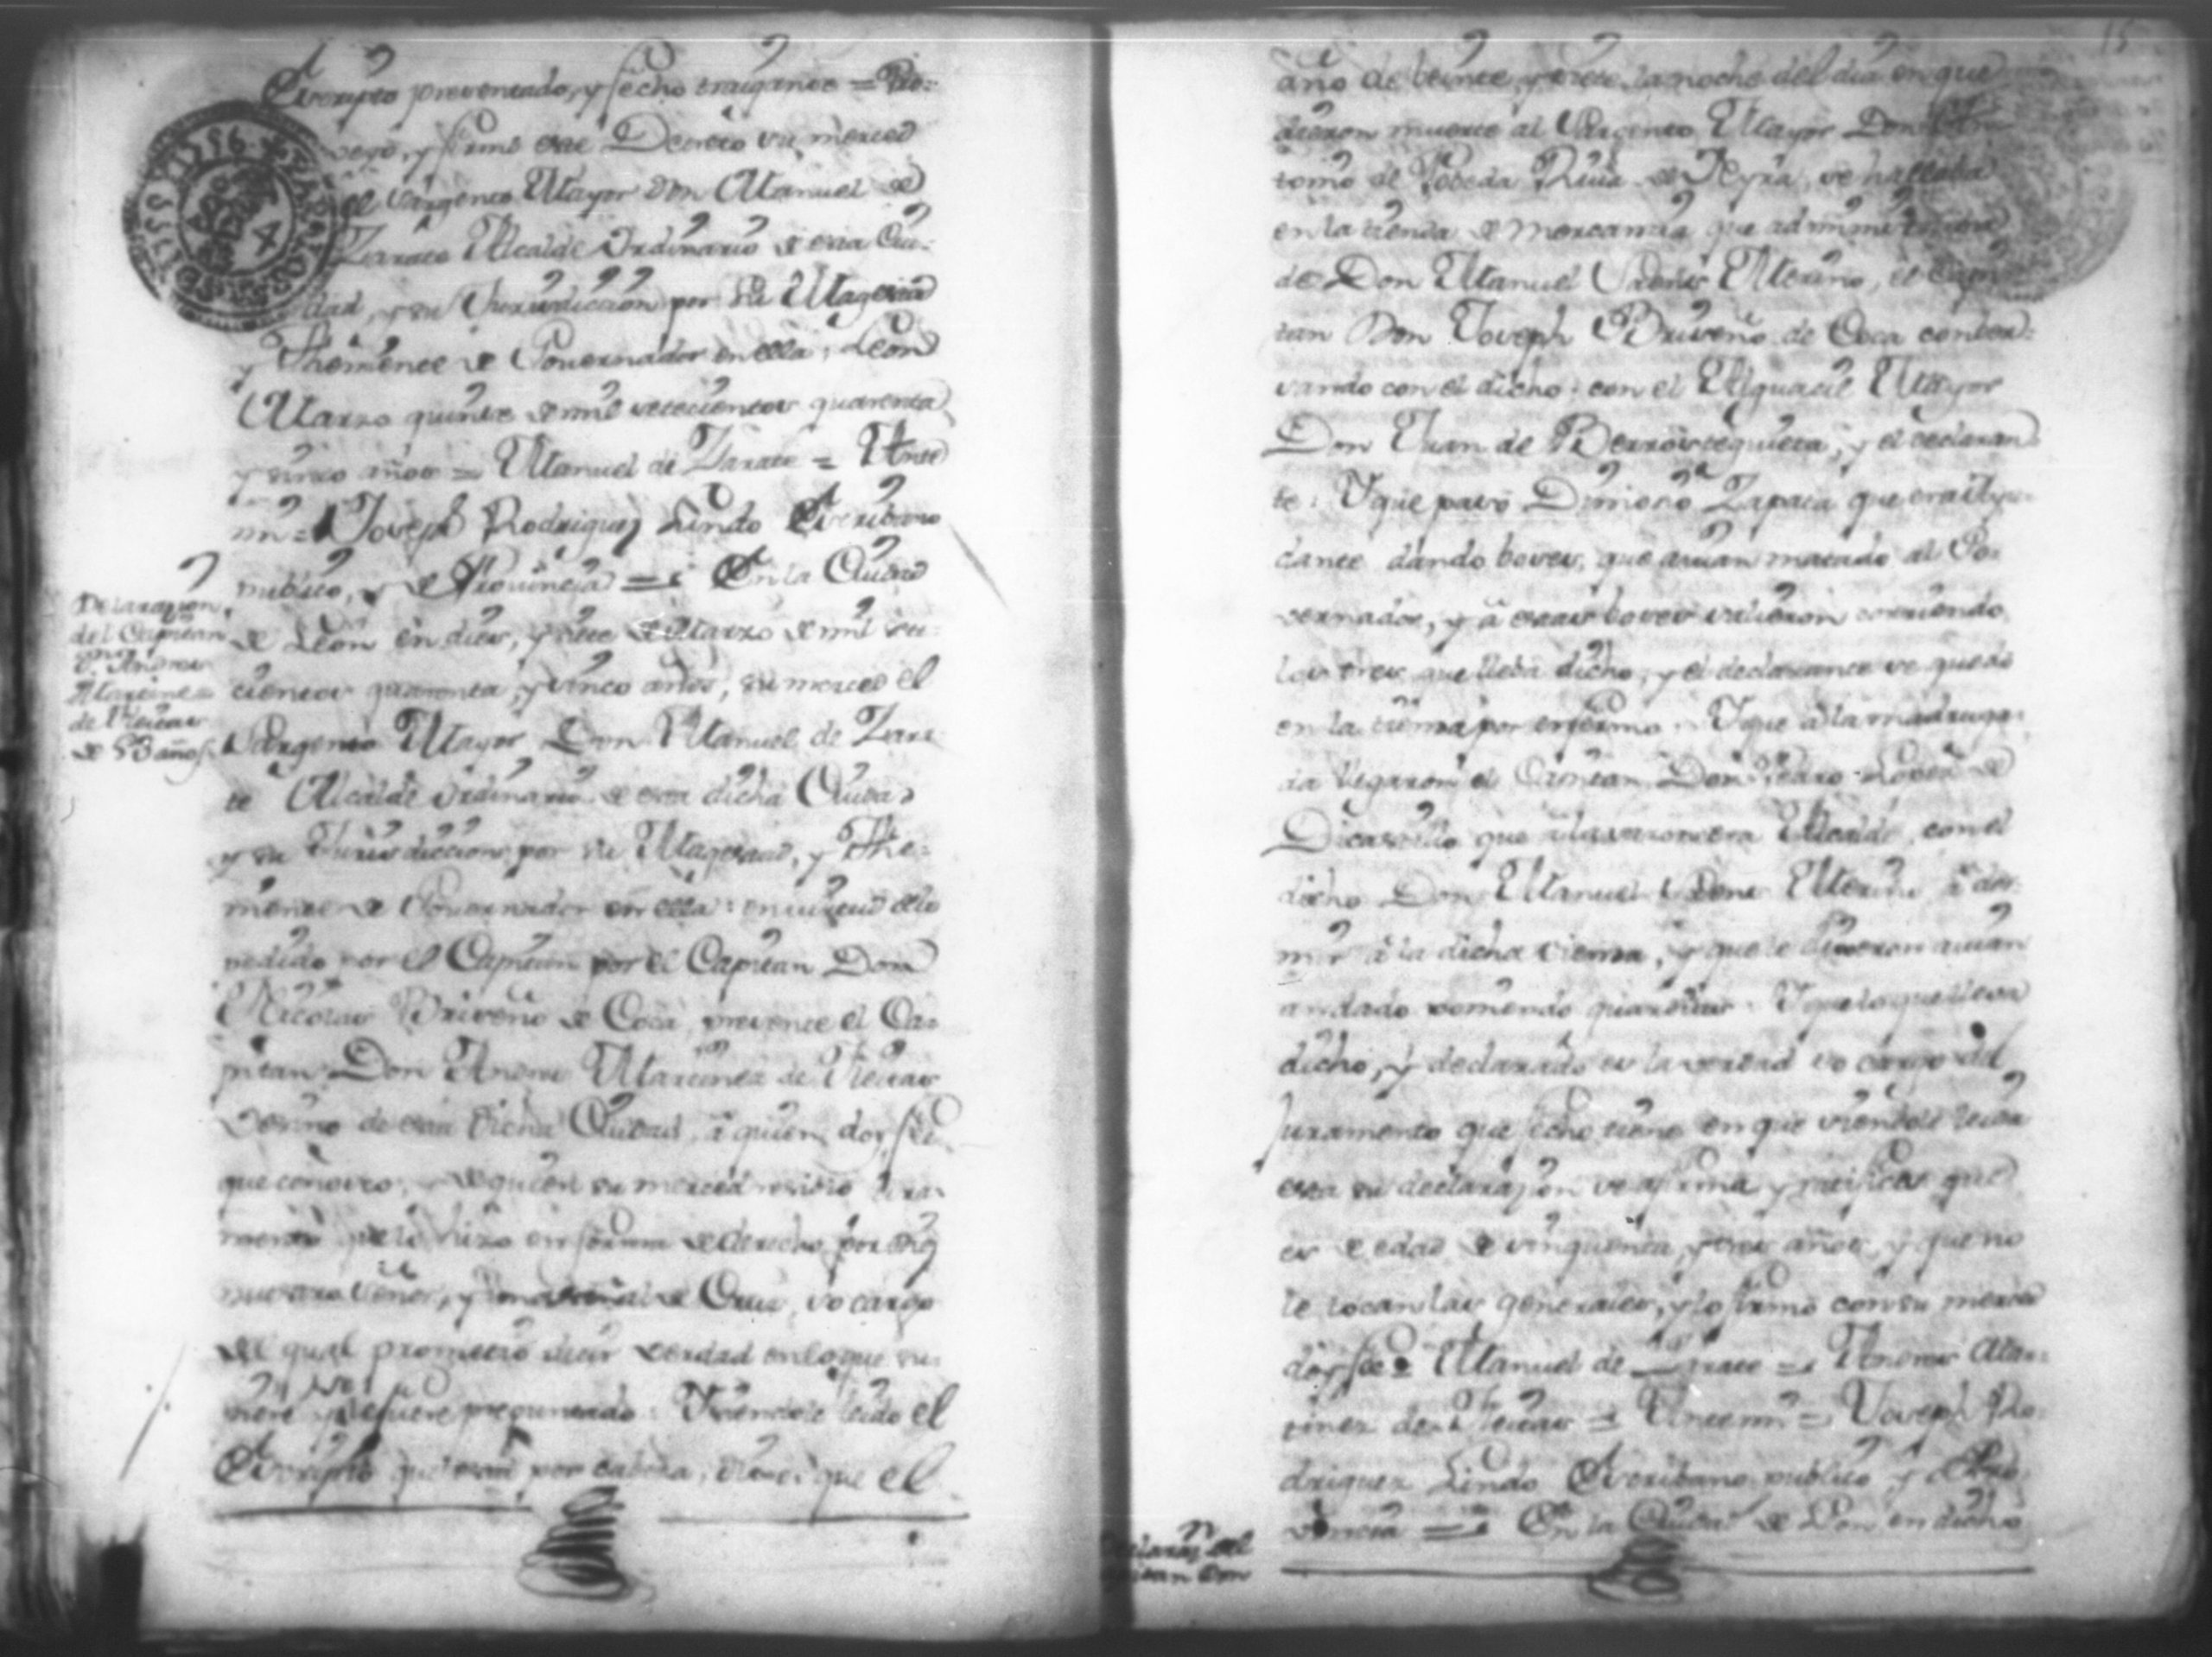 Escripto presentado, y fecho traiganse = Pro-
veyo, y firmó este Decreto su merced
el Sargento Mayor Don Manuel de
Zarate Alcalde Ordinario de esta Ciu-
dad, y su Jurisdiccion por su Magestad
y Theniente de Governador en ella, Leon
Marzo quinse de mil setecientos quarenta
y sinco años = Manuel de Zarate = Ante
mi = Joseph Rodriguez Lindo Escribano
publico, y de Provincia = En la Ciudad
de Leon en dies, y siete de Marzo de mil se-
cientos quarenta, y sinco años, su merced el
Sargento Mayor Don Manuel de Zara-
te Alcalde Ordinario de esta dicha Ciudad
y su Jurisdiccion por su Magestad, y The-
niente de Governador en ella: en virtud de lo
pedido por el Capitan por el Capitan Don
Nicolas Briseño de Coca, presente el Ca-
pitan Don Andres Martinez de
Vesino de esta dicha Ciudad, à quien doy feè
que conosco, de quien su merced resivio Jura-
mento que lo hizo en forma de derecho por Dios
nuestro Señor, y una señal de Cruz, so cargo
del qual prometio desir verdad en lo que su-
piere y le fuere preguntado: Y siendole leido el
Escripto que está por cabeza, dixo: que el
Declarazion
del Capitan
D. Andres
Martines
de
de 53 años
15
año de beinte, y siete, la noche del dia en que
dieron muerte al Sargento Mayor Don An-
tonio de Poveda Rivadeneyra, se hallaba
en la tienda de mercansia que administraba
de Don Manuel Merino, el Capi-
tan Don Joseph Briseño de Coca conber-
sando con el dicho: con el Alguacil Mayor
Don Juan de Berroistequieta, y el declaran-
te: Y que pasó Dionicio Zapata que era
dante dando boses, que avian matado al Go-
vernador, y à estas boses salieron corriendo
los tres que lleba dicho, y el declarante se quedò
en la tienda por enfermo. Y que à la madruga-
da llegaron el Capitan Don Pedro Lopez de
Dicastillo que à la sazon era Alcalde, con el
dicho Don Manuel Merino à dor-
mir à la dicha tienda, y que le dixeron avian
andado poniendo guardias. Y que lo que lleva
dicho, y declarado es la verdad so cargo del
Juramento que fecho tiene en que siendole leida
esta su declarazion se afirma y ratifica, que
es de edad de sinquenta y tres años, y que no
le tocan las generales, y lo firmó con su merced
doy feè = Manuel de Zarate = Andres Mar-
tinez de = Ante mi = Joseph Ro-
driguez Lindo Escribano publico, y de Pro-
vincia = En la Ciudad de Leon en dicho